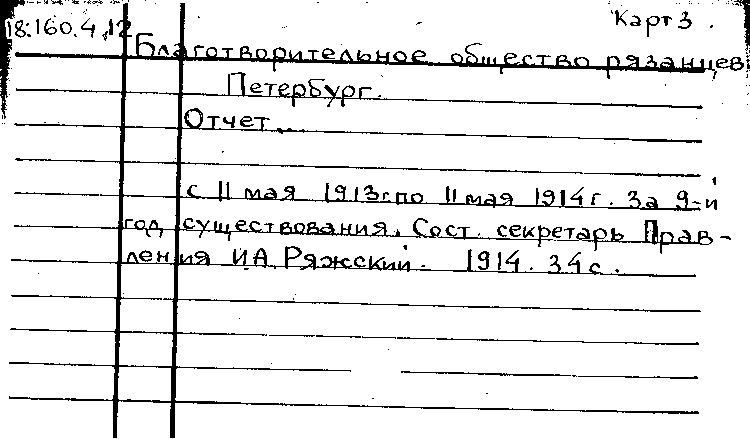 18:160.4,12 Карт 3.
Благотворительное общество рязанцев
Петербург.
Отчет...
с 11 мая 1913г. по 11 мая 1914 г. За 9-й
год существования. Сост. секретарь Прав-
ления И.А. Ряжский. 1914. 34 с.